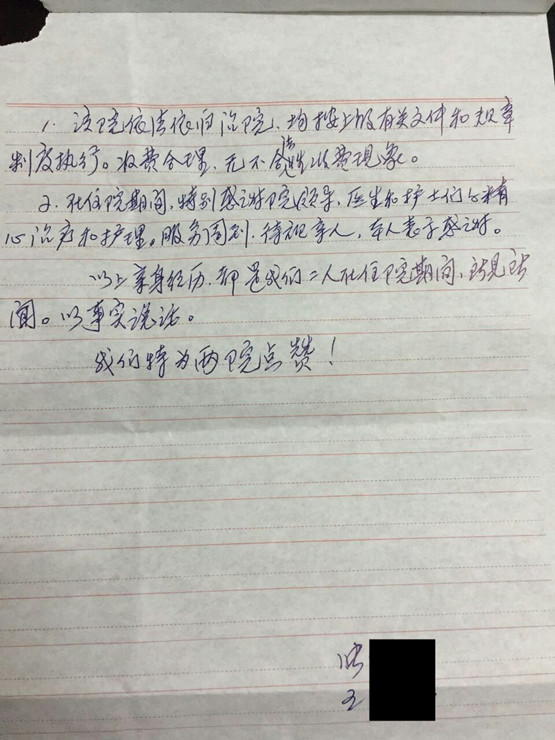 1. 该院依法依归治院,均按上级有关文件和规章
制度执行。收费合理,无不合法收费现象。
2. 在住院期间,特别感谢院领导,医生和护士们的精
心治疗和护理。服务周到,待视亲人,本人表示感谢。
以上亲身经历,都是我们二人在住院期间,所见所
闻。以事实说话。
我们特为两院点赞!